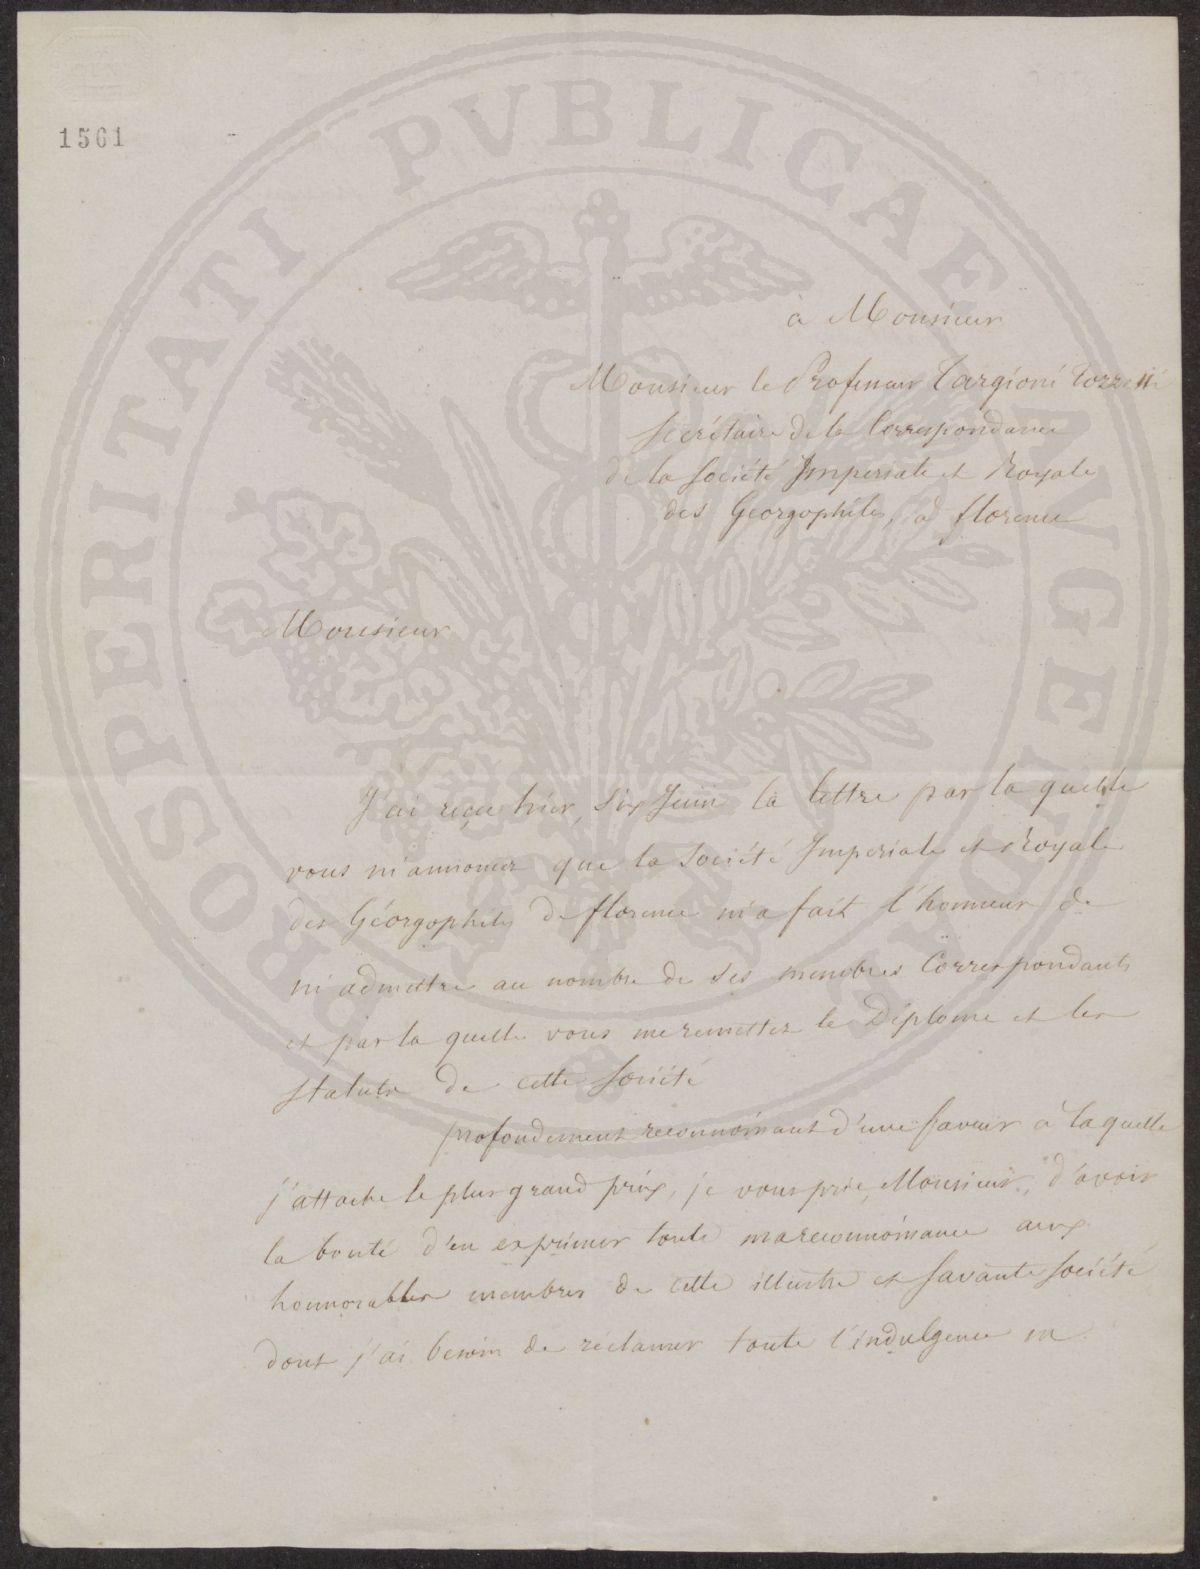 1561
PROSPERITATI PVBLICAE AVGENDAE
à Monsieur
Monsieur le Professeur Targioni Tozzetti
Secrétaire de la Correspondance
de la Société Imperiale et Royale
des Georgophiles, à florence
Monsieur
J'ai reçu hier, six Juin la lettre par la quelle
vous m'annoncez que la Société Imperiale et Royale
des Géorgophiles de florence m'a fait l'honneur de
m'admettre au nombre de ses membres Correspondants
et par la quelle vous me remettez le Diplome et les
Statuts de cette Société
profondement reconnoissant d'une faveur à laquelle
j'attache le plus grand prix, je vous prie, Monsieur, d'avoir
la bonté d'en exprimer toute ma reconnoissance aux
honnorables membres de cette illustre et Savante Société
dont j'ai besoin de réclamer toute l'indulgence en